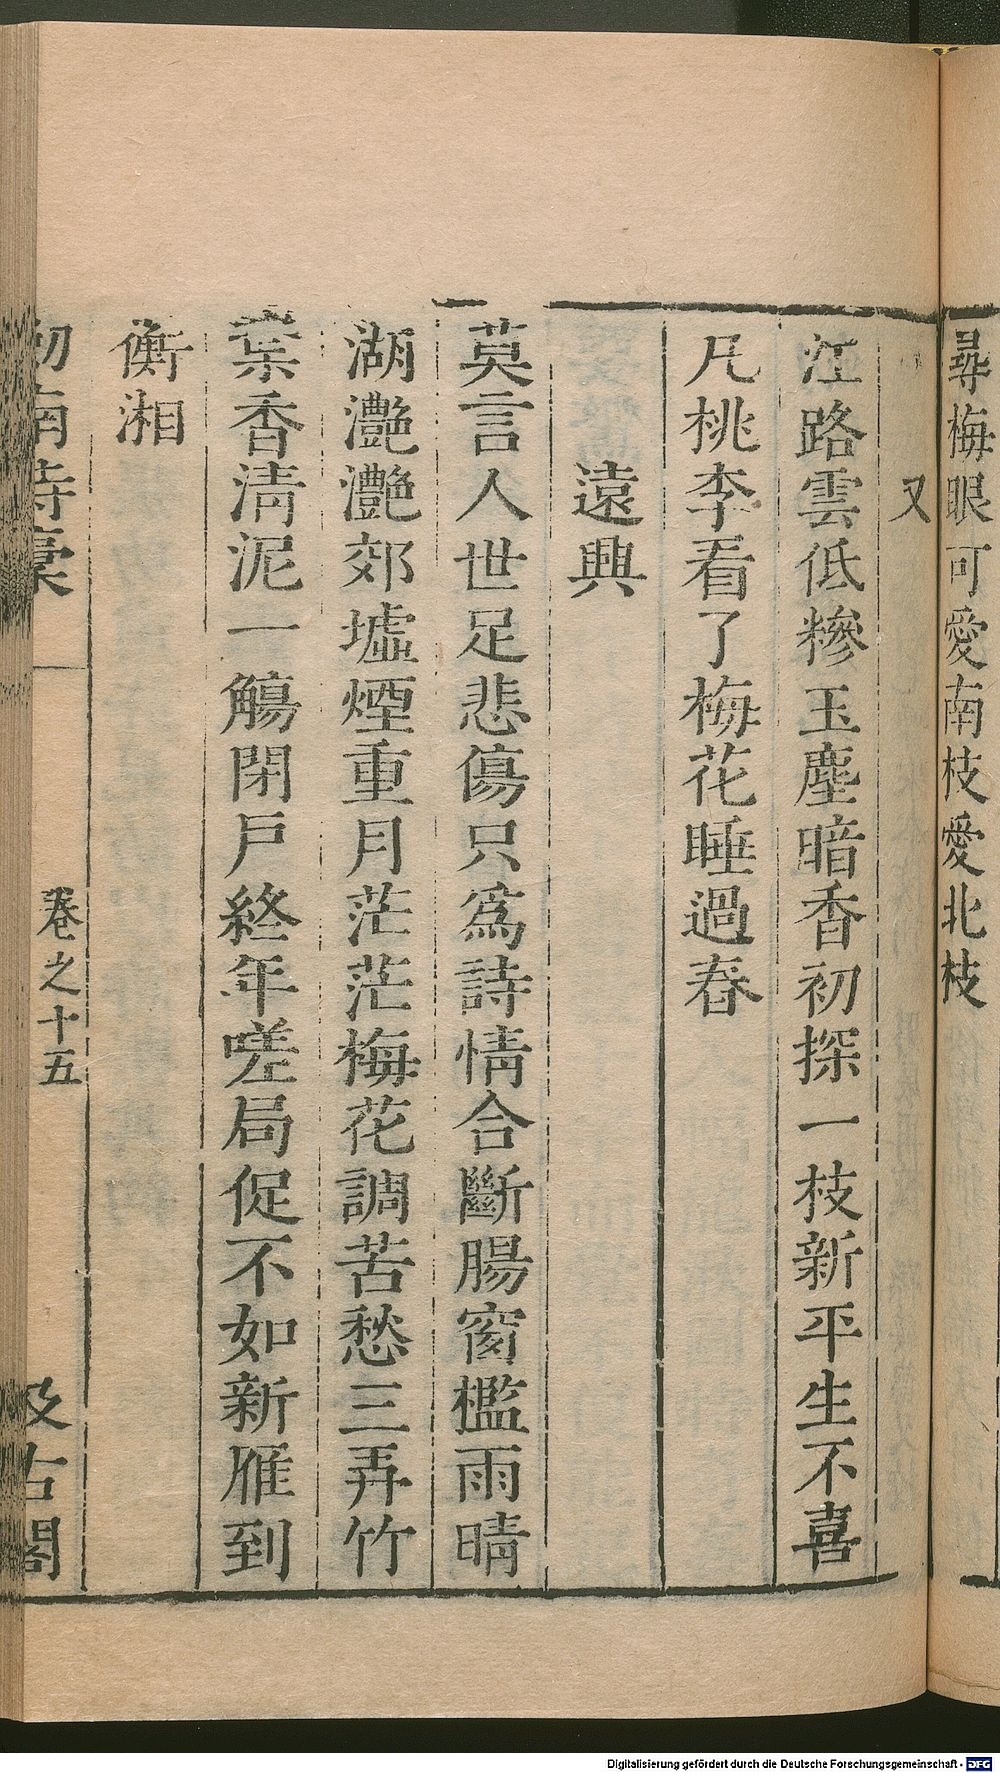 尋梅眼可愛南枝愛北枝
又
江路雲低糝玉塵暗香初探一枝新平生不喜
凡桃李看了梅花睡過春
遠興
莫言人世足悲傷只爲詩情合斷腸窗檻雨晴
湖灧灧郊墟煙重月茫茫梅花調苦愁三弄竹
葉香清泥一觴閉戶終年嗟局促不如新雁到
衡湘
劍南詩稾
卷之十五
汲古閣
Digitalisierung gefördert durch die Deutsche Forschungsgemeinschaft - DFG